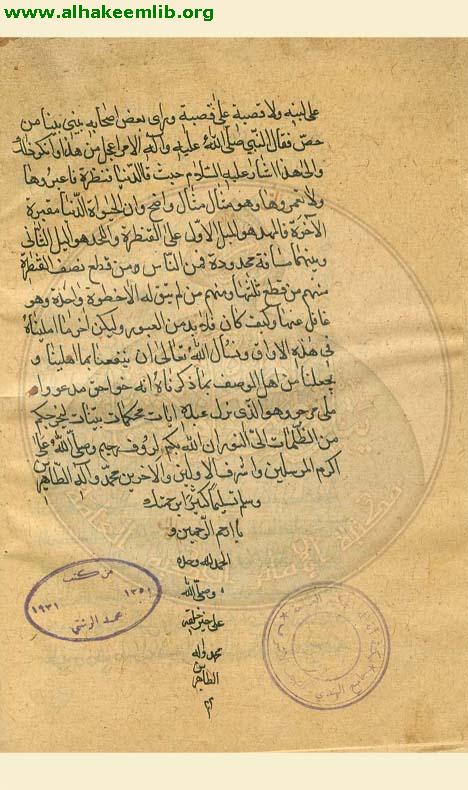 www.alhakeemlib.org
على لبنة ولا قصبة على قصبة ورأى بعض اصحابه يبني بيتا من
جص فقال النبي صلى الله عليه وآله الامر اعجل من هذا وانكر ذلك
والى هذا اشار عليه السلام حيث قال الدنيا قنطرة فاعبروها
ولا تعمروها وهو مثال واضح وان الحيوة الدنيا مقبرة
الآخرة فالمهد هو الميل الاول على القنطرة واللحد هو الميل الثاني
وبينهما مسافة محدودة فمن الناس ومن قطع نصف القنطرة
منهم من قطع ثلثها ومنهم من لم يبق له الا خطوة واحدة وهو
غافل عنها وكيف كان فلا بد من العبور وليكن آخر ما امليناه
في هذه الاوراق ونسأل الله تعالى ان ينفعنا بما املينا و
يجعلنا من اهل الوصف بما ذكرناه انه خير مدعو وا
ملى مرجو وهو الذي نزل على عبده آيات بينات ليخرجكم
من الظلمات الى النور ان الله بكم لرؤف رحيم وصلى الله على
اكرم المرسلين واشرف الاولين والآخرين محمد وآله الطاهرين
وسلم تسليما كثيرا برحمتك
يا ارحم الراحمين و
الحمد لله وحده
وصلى الله
على خير خلقه
محمد وآله
الطاهرين
م
من كتب
١٣٥١ ١٩٣١
محمد الرشتي